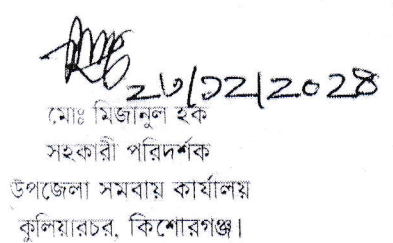 ২৬/১২/২০২৪
মোঃ মিজানুল হক
সহকারী পরিদর্শক
উপজেলা সমবায় কার্যালয়
কুলিয়ারচর, কিশোরগঞ্জ।